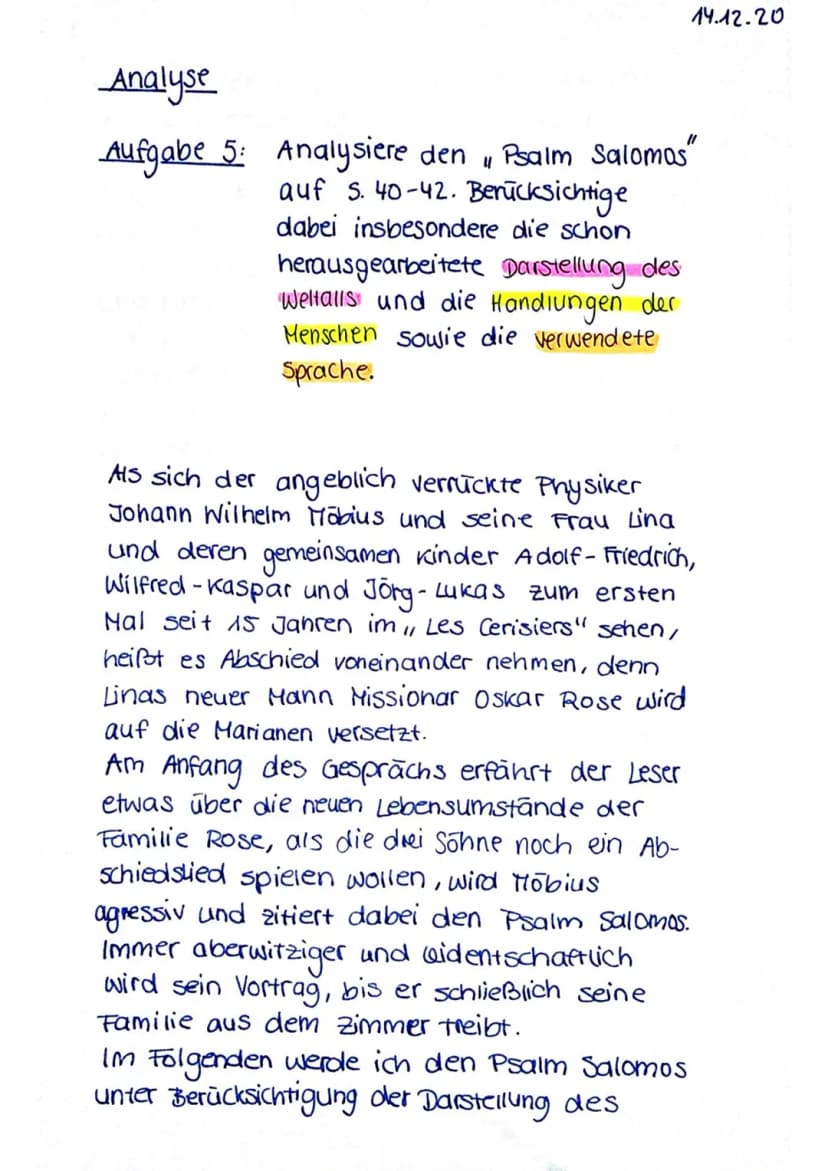 14.12.20
Analyse
Aufgabe 5: Analysiere den „Psalm Salomos"
auf S. 40-42. Berücksichtige
dabei insbesondere die schon
herausgearbeitete Darstellung des
Weltalls und die Handlungen der
Menschen sowie die verwendete
Sprache.
Als sich der angeblich verrückte Physiker
Johann Wilhelm Möbius und seine Frau Lina
und deren gemeinsamen Kinder Adolf-Friedrich,
Wilfred-Kaspar und Jörg-Lukas zum ersten
Mal seit 15 Jahren im „Les Cerisiers" sehen,
heißt es Abschied voneinander nehmen, denn
Linas neuer Mann Missionar Oskar Rose wird
auf die Marianen versetzt.
Am Anfang des Gesprächs erfährt der Leser
etwas über die neuen Lebensumstände der
Familie Rose, als die drei Söhne noch ein Ab-
schiedslied spielen wollen, wird Möbius
agressiv und zitiert dabei den Psalm Salomos.
Immer aberwitziger und leidentschaftlich
wird sein Vortrag, bis er schließlich seine
Familie aus dem Zimmer treibt.
Im Folgenden werde ich den Psalm Salomos
unter Berücksichtigung der Darstellung des